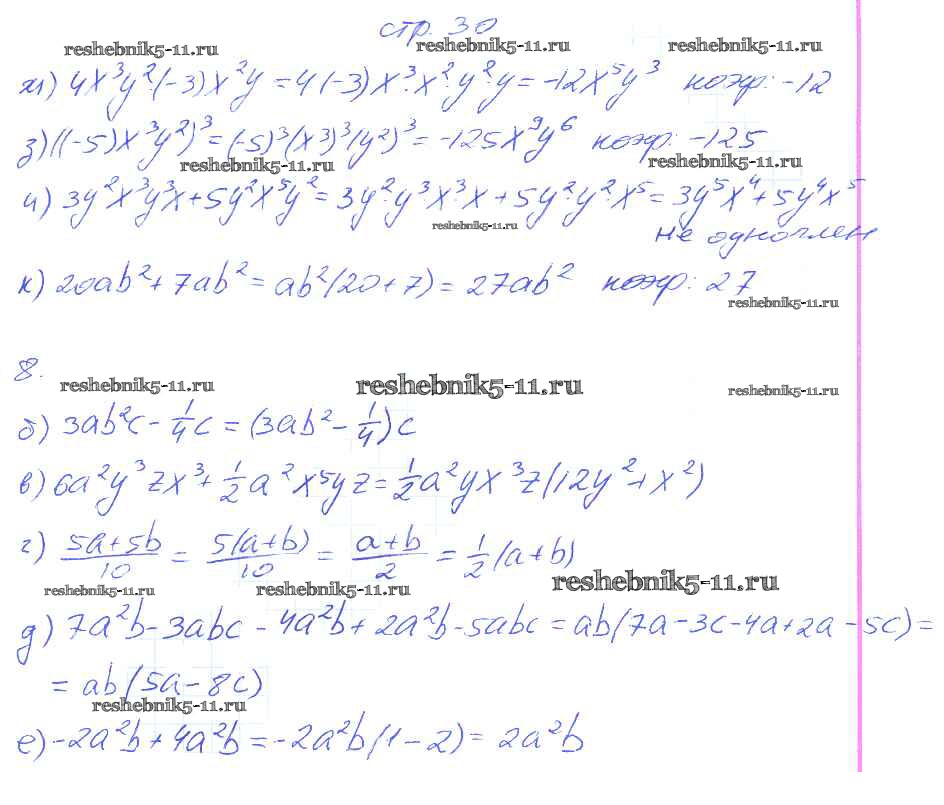 стр. 30
reshebnik5-11.ru reshebnik5-11.ru reshebnik5-11.ru
ж) 4x³y²·(-3)x²y = 4·(-3)x³·x²·y²·y = -12x⁵y³ коэф: -12
з) ((-5)x³y²)³ = (-5)³·(x³)³·(y²)³ = -125x⁹y⁶ коэф: -125
reshebnik5-11.ru reshebnik5-11.ru
и) 3y²x³y³x + 5y²x⁵y² = 3y²·y³x³·x + 5y²·y²·x⁵ = 3y⁵x⁴ + 5y⁴x⁵
reshebnik5-11.ru
не одночлен
к) 20ab² + 7ab² = ab²(20+7) = 27ab² коэф: 27
reshebnik5-11.ru
8.
reshebnik5-11.ru reshebnik5-11.ru reshebnik5-11.ru
б) 3ab²c - 1/4c = (3ab² - 1/4)c
в) 6a²y³zx³ + 1/2a²x⁵yz = 1/2a²yx³z(12y² + x²)
г) (5a+5b)/10 = 5(a+b)/10 = (a+b)/2 = 1/2(a+b)
reshebnik5-11.ru reshebnik5-11.ru reshebnik5-11.ru
д) 7a²b - 3abc - 4a²b + 2a²b - 5abc = ab(7a - 3c - 4a + 2a - 5c) =
= ab(5a - 8c)
reshebnik5-11.ru
е) -2a²b + 4a²b = -2a²b(1-2) = 2a²b